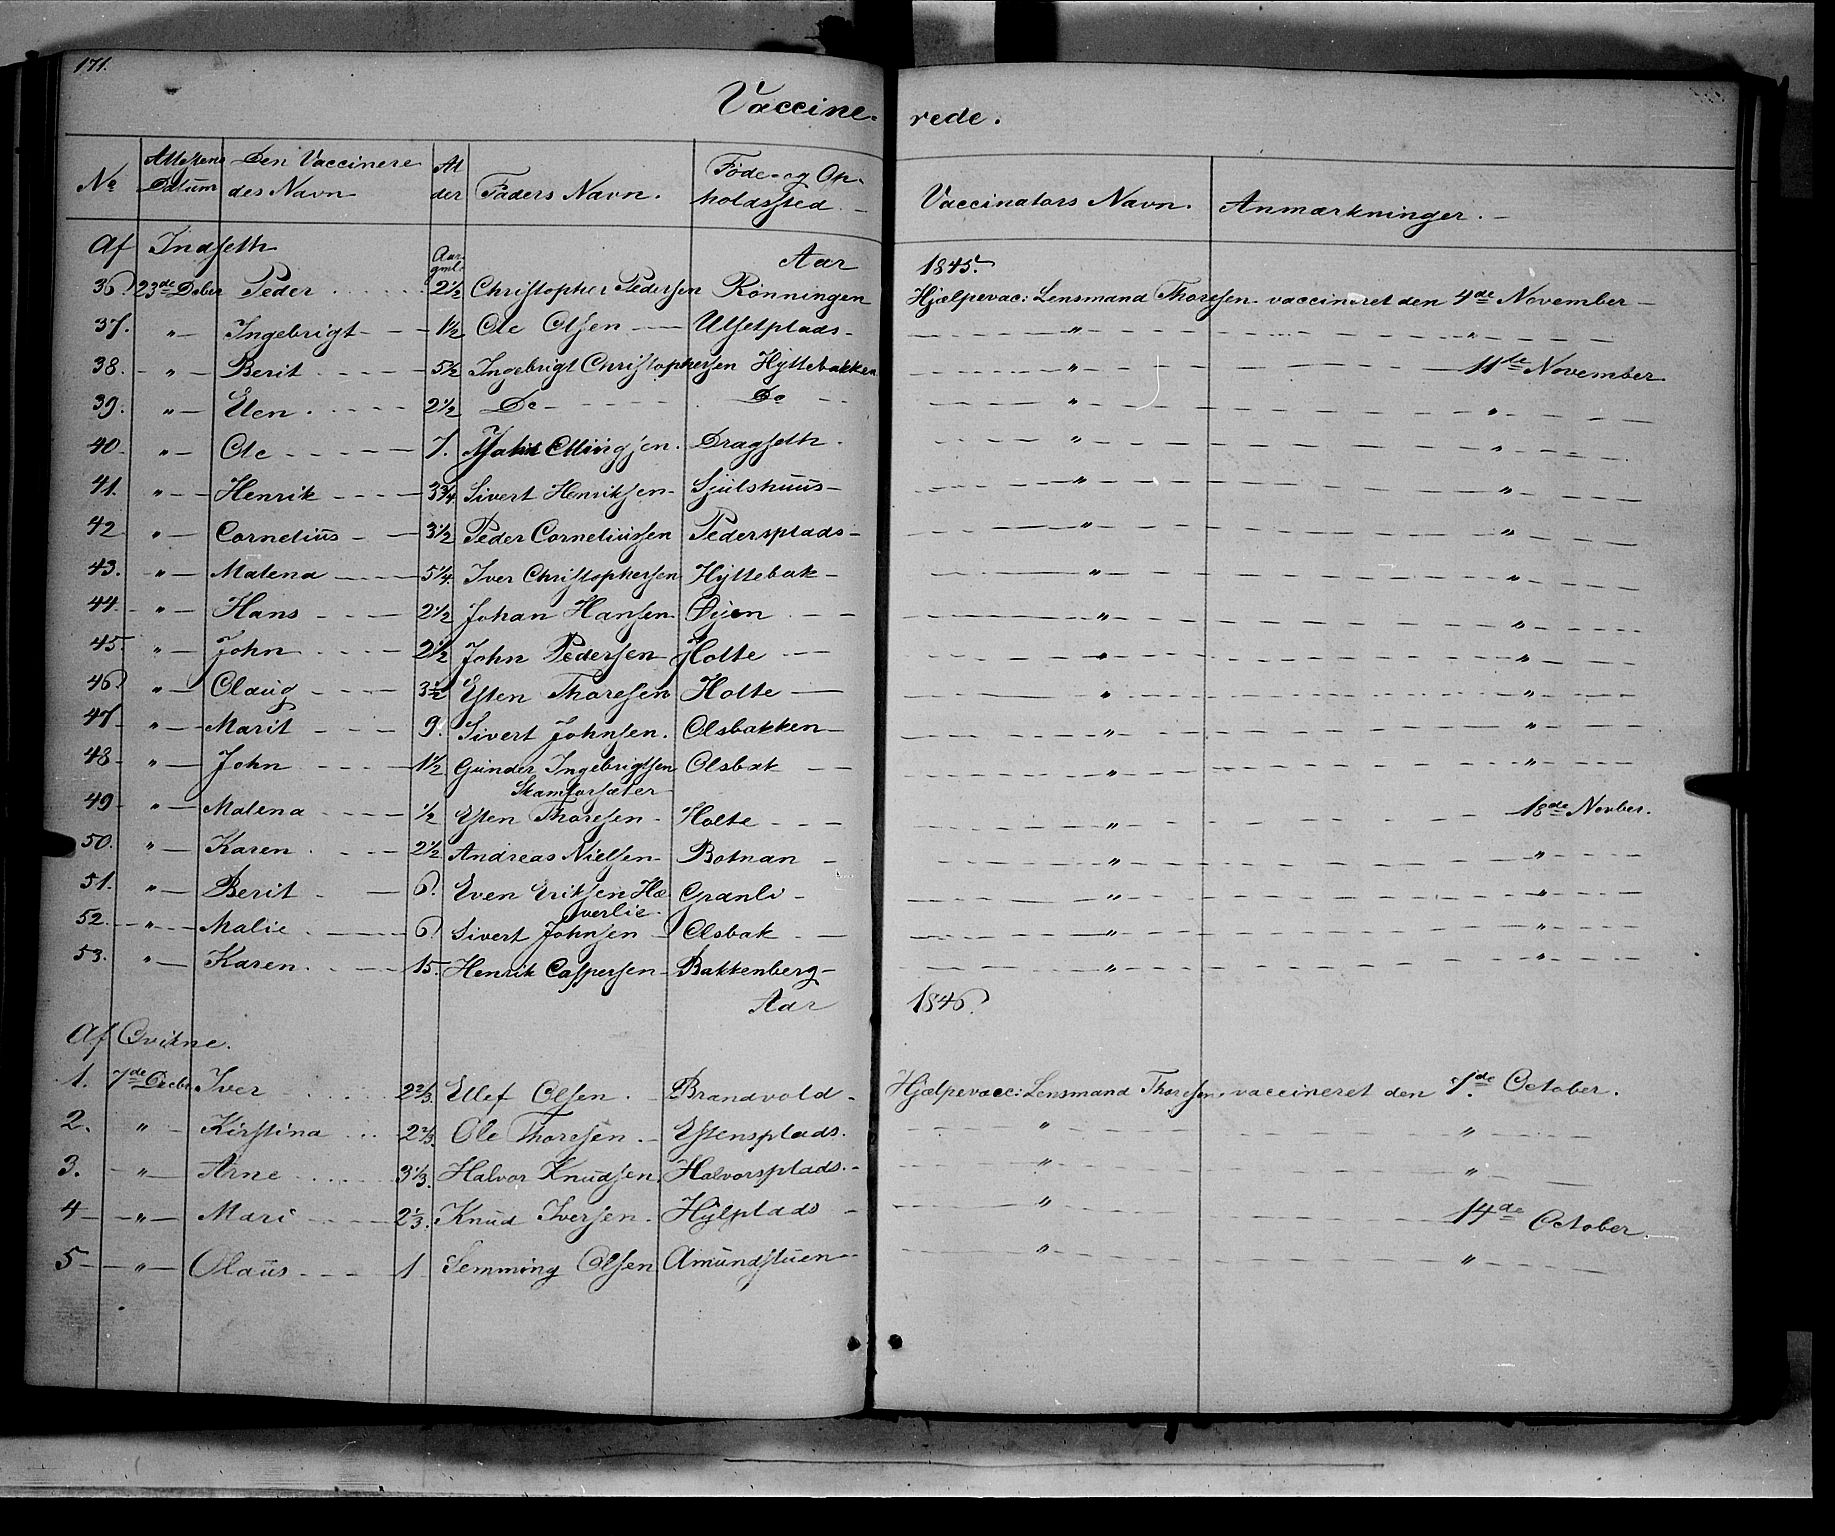 171.
Vaccine- rede.
No Attestens Datum Den Vaccineredes Navn Alder Faders Navn. Føde- og Opholdssted Vaccinators Navn. Anmærkninger.
Af Indseth Aar gml. Aar 1845.
36. 23de Deber Peder 2 1/2 Christopher Pedersen Rønningen Hjælpevac: Lensmand Thoresen vaccineret den 4de November
37. " Ingebrigt 1 1/2 Ole Olsen Ulsetplads " "
38. " Berit 5 1/2 Ingebrigt Christophersen Hyttebakken " 11te November
39. " Elen 2 1/2 Do Do " "
40. " Ole 7. Ellingsen. Dragseth " "
41. " Henrik 3 3/4 Sivert Henriksen Sjulshuus " "
42. " Cornelius 3 1/2 Peder Corneliussen Pedersplads " "
43. " Malena 5 1/4 Iver Christophersen Hyttebak " "
44. " Hans 2 1/2 Johan Hansen Øien " "
45. " John 2 1/2 John Pedersen Holte " "
46. " Olaug 3 1/2 Esten Thoresen Holte " "
47. " Marit 9. Sivert Johnsen. Olsbakken " "
48. " John 1 1/2 Gunder Ingebrigtsen Olsbak " "
Skamfarsæter
49. " Malena 1/2 Esten Thoresen Holte " 18de Novber.
50. " Karen 2 1/2 Andreas Nielsen Botnan " "
51. " Berit 6. Even Eriksen Hæverlie Granli " "
52. " Malie 6. Sivert Johnsen Olsbak " "
53. " Karen 15. Henrik Caspersen Bakkenberg " "
Aar 1846.
Af Qvikne.
1. 7de Decbr Iver 2 2/3. Ellef Olsen. Brandvold Hjælpevacc: Lensmand Thoresen, vaccineret den 7de October.
2. " Kirstina 2 2/3. Ole Thoresen. Estensplads. " "
3. " Arne 3 1/3. Halvor Knudsen Halvorsplads. " "
4 " Mari 2 1/3. Knud Iversen. Hylplads " 14de October.
5 " Olaus 1 Semming Olsen Amundstuen " "